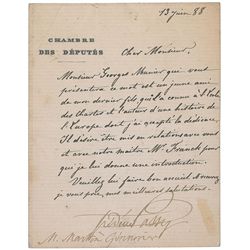 13 juin 88
CHAMBRE
DES DÉPUTÉS
Cher Monsieur,
Monsieur Georges Meunier qui vous
présentera ce mot est un jeune ami
de mon dernier fils qu'il a connu à l'école
des chartes et l'auteur d'une histoire de
l'Europe dont j'ai accepté la dédicace.
Il désire être mis en relations avec vous
et avec notre maître Mr. Franck pour
qui je lui donne une introduction.
Veuillez lui faire bon accueil et recevez,
je vous prie, mes meilleures salutations.
Frédéric Passy
M. Martin